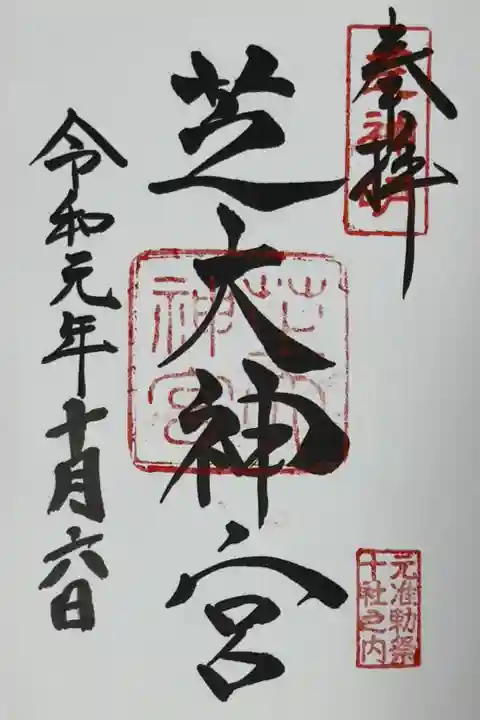 奉拝
芝大神宮
令和元年十月六日
芝大
神宮
元准勅祭
十社之内